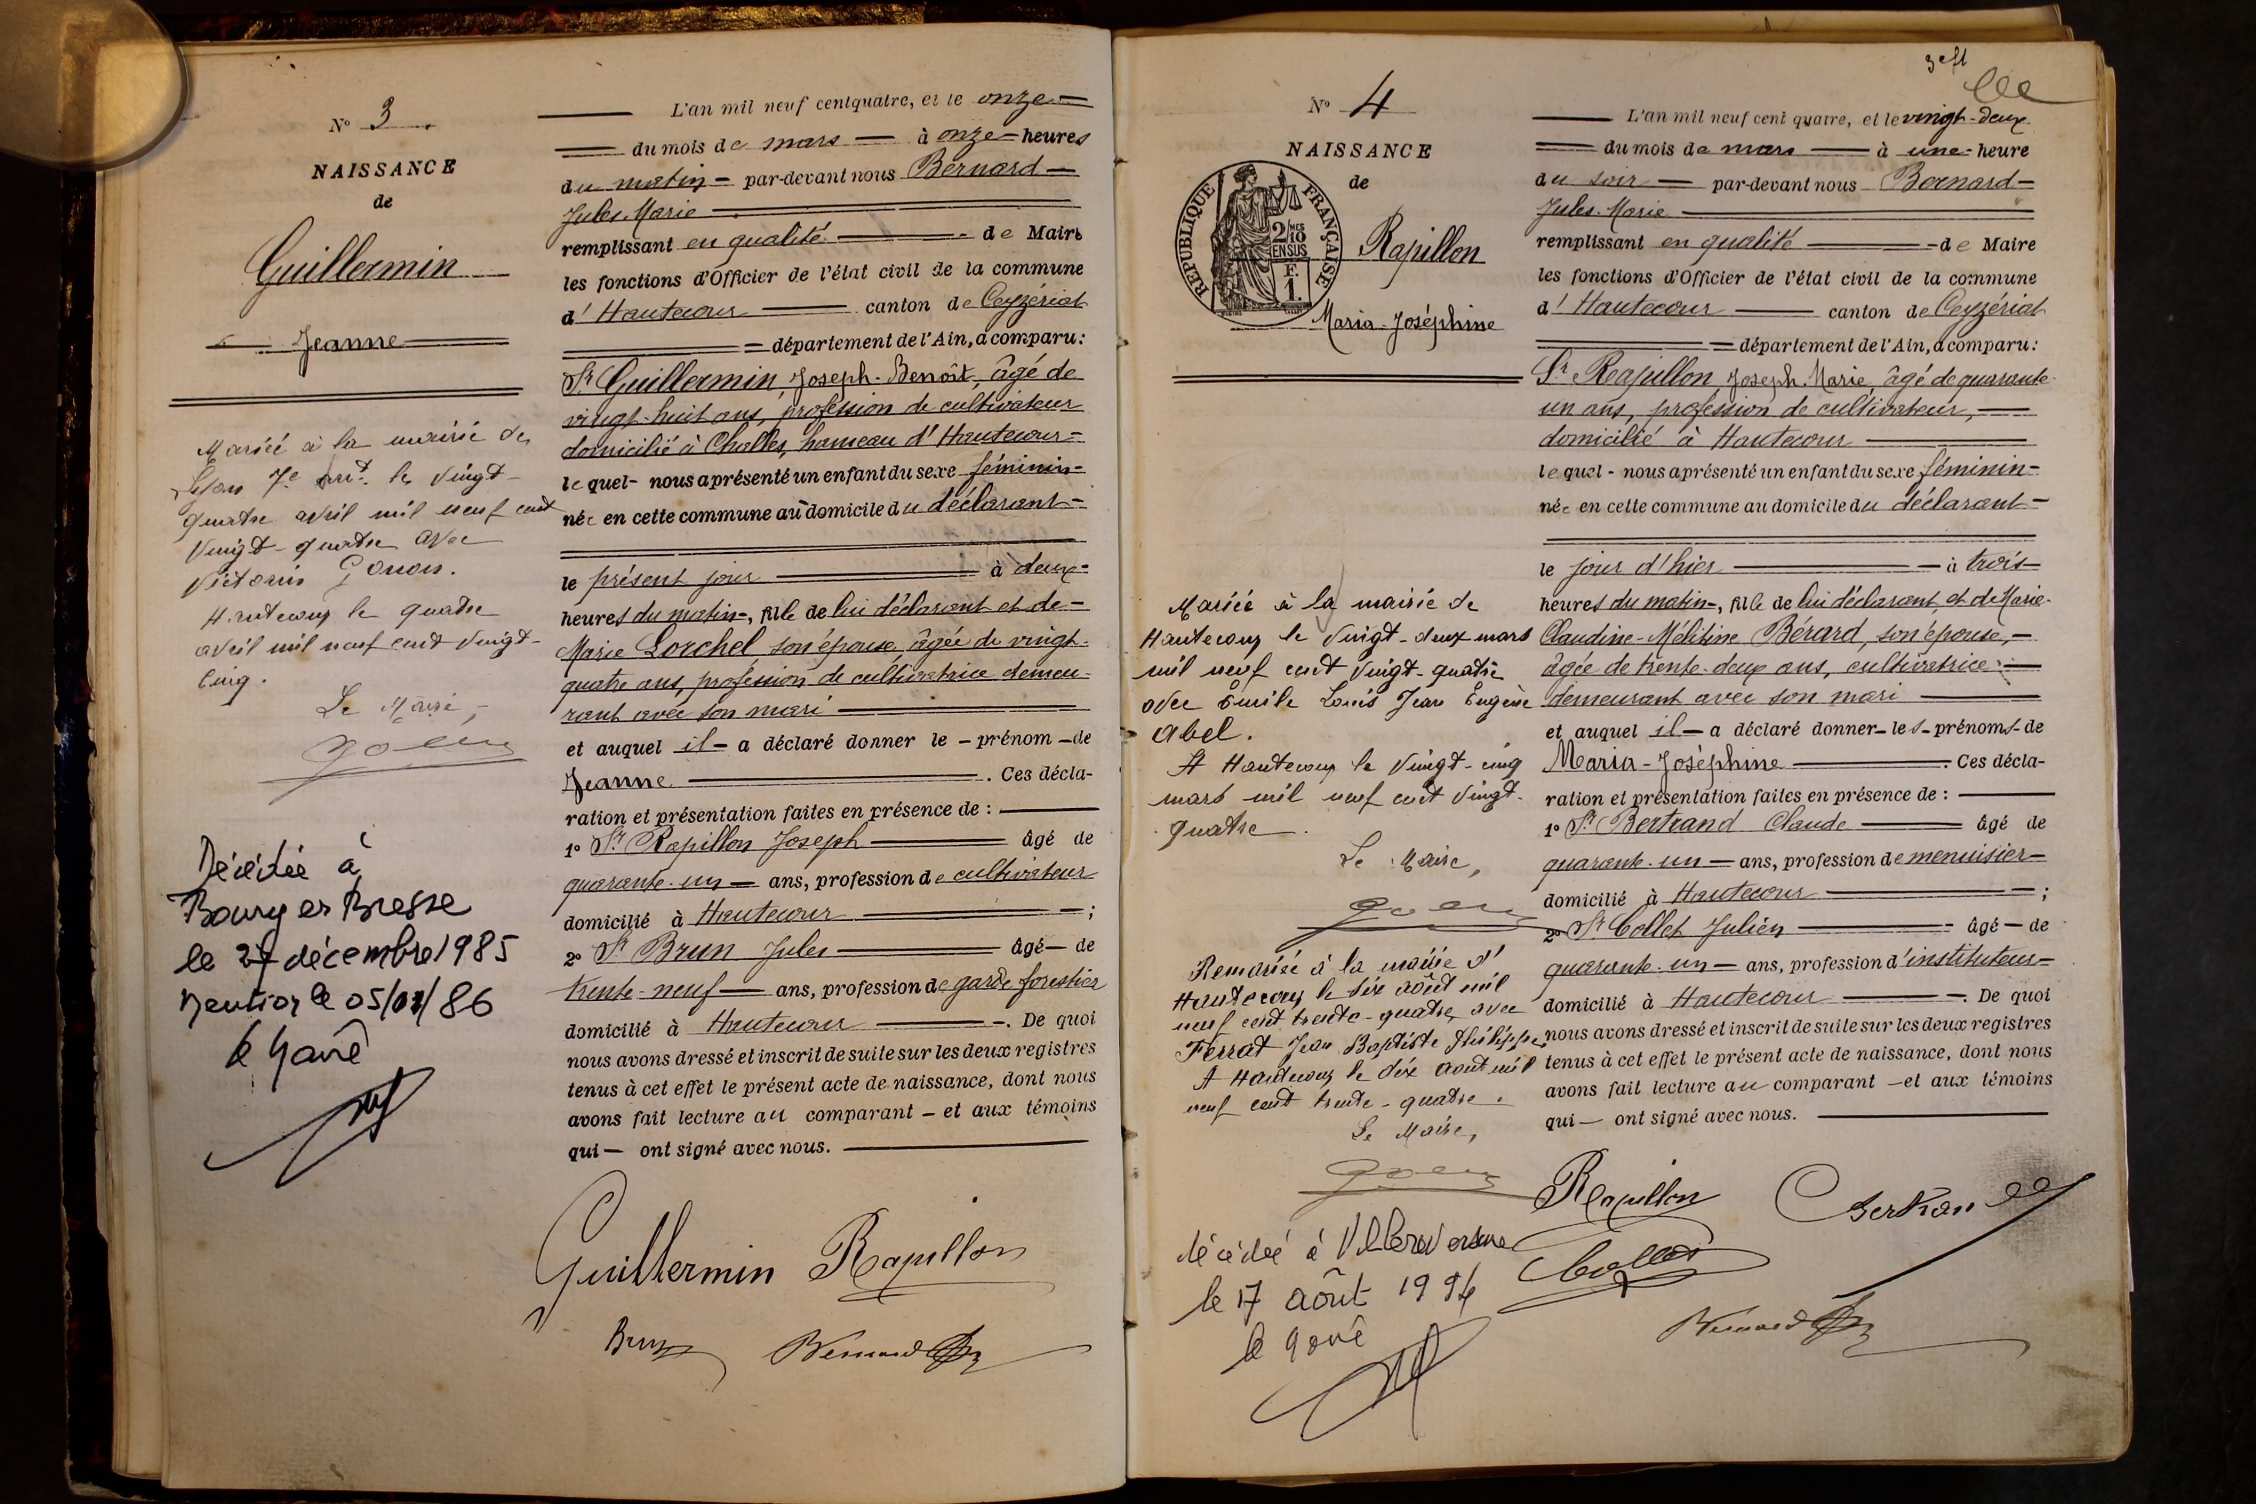 N° 3
NAISSANCE
de
Guillermin
Jeanne
Mariée à la mairie de
Lyon 7e arrt. le vingt-
quatre avril mil neuf cent
vingt-quatre avec
Victorin Gonon.
Hautecour le quatre
avril mil neuf cent vingt-
cinq.
Le Maire,
Décédée à
Bourg en Bresse
le 27 décembre 1985
Mention le 05/01/86
L'an mil neuf cent quatre, et le onze
du mois de mars à onze heures
du matin par-devant nous Bernard
Jules-Marie
remplissant en qualité de Maire
les fonctions d'Officier de l'état civil de la commune
d'Hautecour canton de Ceyzériat
département de l'Ain, a comparu:
Sr Guillermin, Joseph-Benoît, âgé de
vingt-huit ans, profession de cultivateur
domicilié à Challes, hameau d'Hautecour
lequel nous a présenté un enfant du sexe féminin
née en cette commune au domicile du déclarant
le présent jour à deux
heures du matin, fille de lui déclarant et de
Marie Lorchel son épouse, âgée de vingt-
quatre ans, profession de cultivatrice demeu-
rant avec son mari
et auquel il a déclaré donner le prénom de
Jeanne. Ces décla-
ration et présentation faites en présence de :
1° Sr Rapillon Joseph âgé de
quarante-un ans, profession de cultivateur
domicilié à Hautecour ;
2° Sr Brun Jules âgé de
trente-neuf ans, profession de garde forestier
domicilié à Hautecour. De quoi
nous avons dressé et inscrit de suite sur les deux registres
tenus à cet effet le présent acte de naissance, dont nous
avons fait lecture au comparant et aux témoins
qui ont signé avec nous.
Guillermin Rapillon
Brun Bernard
3e fl
N° 4
NAISSANCE
de
RÉPUBLIQUE FRANÇAISE
2/10 MES
EN SUS
F.
1.
Rapillon
Maria-Joséphine
Mariée à la mairie de
Hautecour le vingt-deux mars
mil neuf cent vingt-quatre
avec Emile Louis Jean Eugène
Abel.
A Hautecour le vingt-cinq
mars mil neuf cent vingt-
quatre.
Le Maire,
Remariée à la mairie d'
Hautecour le dix août mil
neuf cent trente-quatre, avec
Ferrat Jean Baptiste Philippe
A Hautecour le dix août mil
neuf cent trente-quatre.
Le Maire,
décédée à Villereversure
le 17 août 1994
L'an mil neuf cent quatre, et le vingt-deux
du mois de mars à une heure
du soir par-devant nous Bernard
Jules-Marie
remplissant en qualité de Maire
les fonctions d'Officier de l'état civil de la commune
d'Hautecour canton de Ceyzériat
département de l'Ain, a comparu:
Sr Rapillon, Joseph-Marie, âgé de quarante-
un ans, profession de cultivateur,
domicilié à Hautecour
lequel nous a présenté un enfant du sexe féminin
née en cette commune au domicile du déclarant
le jour d'hier à trois
heures du matin, fille de lui déclarant, et de Marie-
Claudine-Mélitine Bérard, son épouse,
âgée de trente-deux ans, cultivatrice
demeurant avec son mari
et auquel il a déclaré donner les prénoms de
Maria-Joséphine. Ces décla-
ration et présentation faites en présence de :
1° Sr Bertrand Claude âgé de
quarante-un ans, profession de menuisier
domicilié à Hautecour ;
2° Sr Collet Julien âgé de
quarante-un ans, profession d'instituteur
domicilié à Hautecour. De quoi
nous avons dressé et inscrit de suite sur les deux registres
tenus à cet effet le présent acte de naissance, dont nous
avons fait lecture au comparant et aux témoins
qui ont signé avec nous.
Rapillon Bertrand
Collet
Bernard